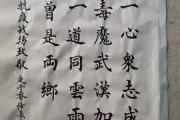 一心衆志成
毒魔武漢加
一道同雲雨
曾是兩鄉
抗疫戰場致敬